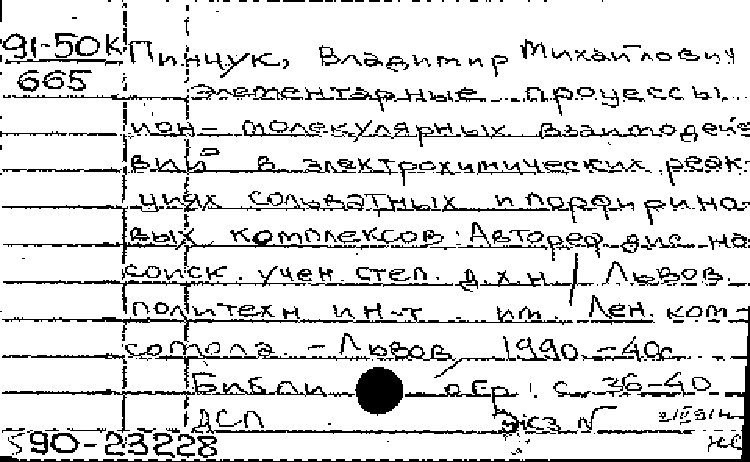 91-50К Пинчук, Владимир Михайлович
665 Элементарные процессы
ион-молекулярных взаимодейс
вий в электрохимических реак-
циях сольватных и порфирино-
вых комплексов: Автореф. дис. на
соиск. учен. степ. д.х.н / Львов.
политехн ин-т им. Лен. ком-
сомола. - Львов, 1990. - 40с
Библиогр.: с. 36-40
ДСП Экз N
590-23228